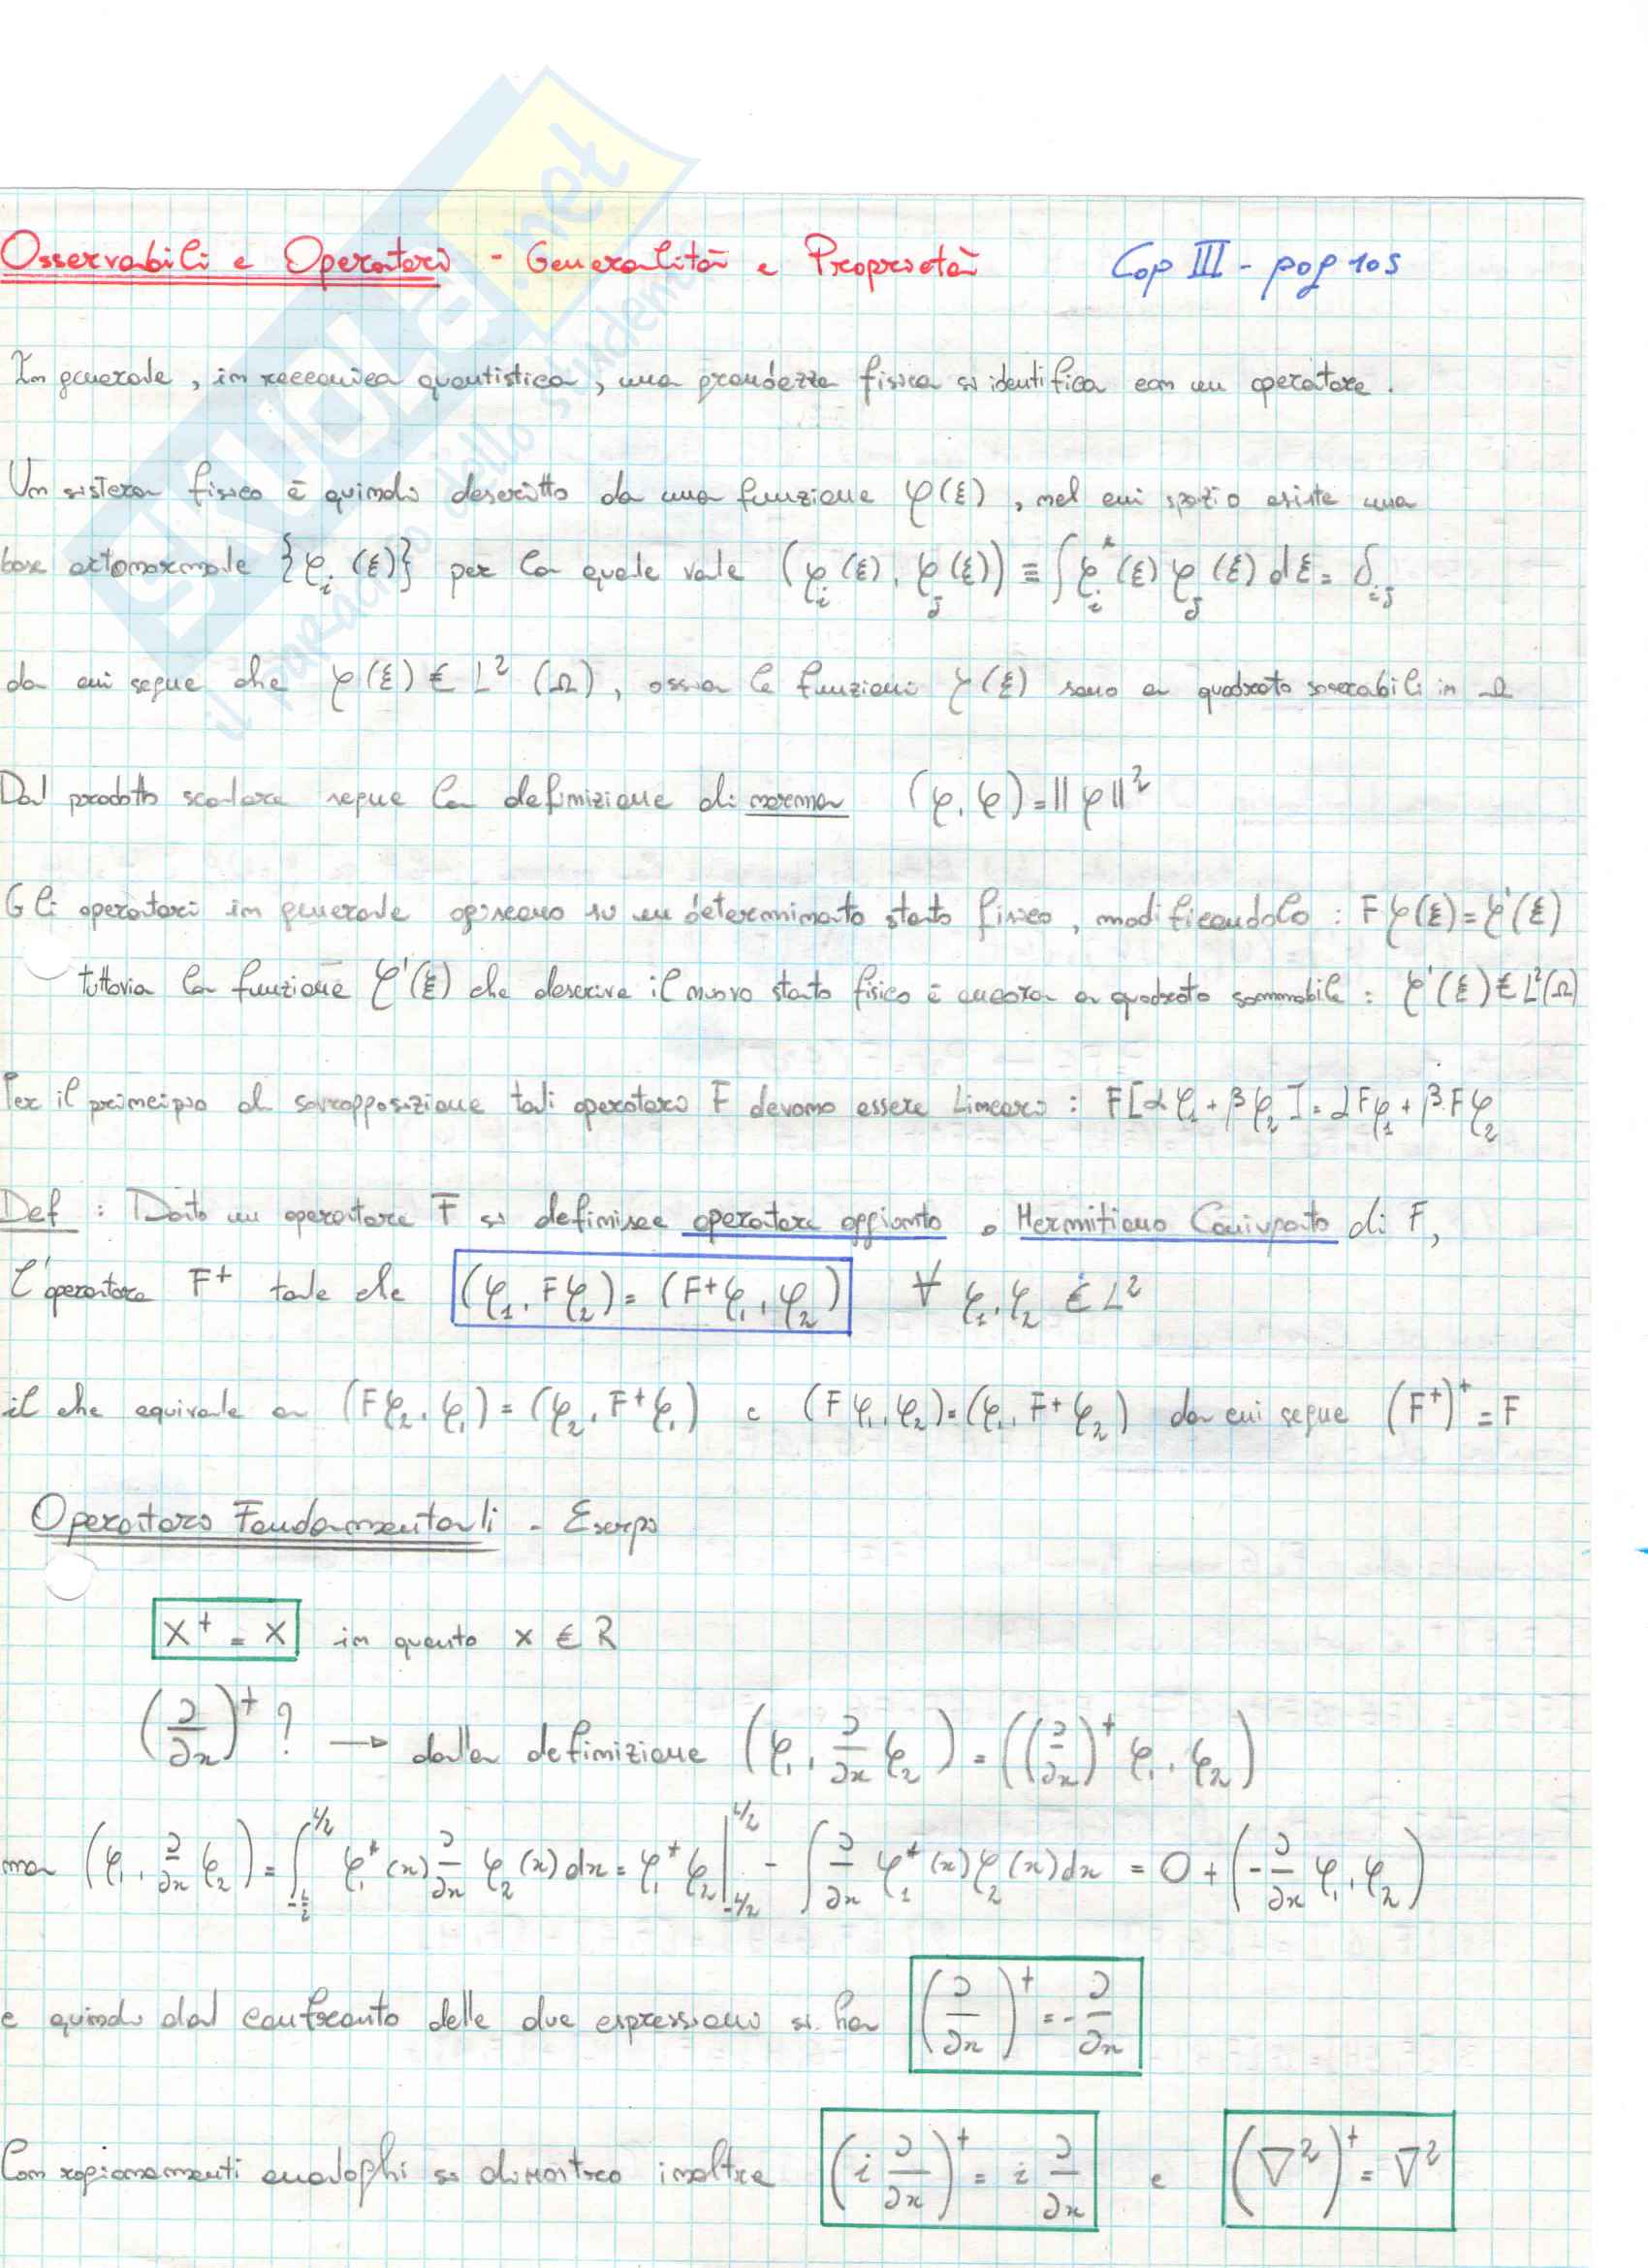 Osservabili e Operatori - Generalità e Proprietà Cap III - pag 105
In generale, in meccanica quantistica, una grandezza fisica si identifica con un operatore.
Un sistema fisico è quindi descritto da una funzione φ(ξ), nel cui spazio esiste una
base ortonormale {φ_i (ξ)} per la quale vale (φ_i(ξ), φ_j(ξ)) ≡ ∫ φ_i*(ξ) φ_j(ξ) dξ = δ_ij
da cui segue che φ(ξ) ∈ L² (Ω), ossia le funzioni φ(ξ) sono a quadrato sommabili in Ω
Dal prodotto scalare segue la definizione di norma (φ, φ) = ||φ||²
Gli operatori in generale agiscono su un determinato stato fisico, modificandolo : F φ(ξ) = φ'(ξ)
tuttavia la funzione φ'(ξ) che descrive il nuovo stato fisico è ancora a quadrato sommabile : φ'(ξ) ∈ L²(Ω)
Per il principio di sovrapposizione tali operatori F devono essere Lineari : F[αφ₁ + βφ₂] = αFφ₁ + βFφ₂
Def : Dato un operatore F si definisce operatore aggiunto o Hermitiano Coniugato di F,
l'operatore F⁺ tale che (φ₁, Fφ₂) = (F⁺φ₁, φ₂) ∀ φ₁, φ₂ ∈ L²
il che equivale a (Fφ₂, φ₁) = (φ₂, F⁺φ₁) e (Fφ₁, φ₂) = (φ₁, F⁺φ₂) da cui segue (F⁺)⁺ = F
Operatori Fondamentali - Esempi
X⁺ = X in quanto x ∈ R
(∂/∂x)⁺ ? → dalla definizione (φ₁, ∂/∂x φ₂) = ((∂/∂x)⁺ φ₁, φ₂)
ma (φ₁, ∂/∂x φ₂) = ∫_{-L/2}^{L/2} φ₁*(x) ∂/∂x φ₂(x) dx = φ₁*φ₂ |_{-L/2}^{L/2} - ∫ ∂/∂x φ₁*(x) φ₂(x) dx = 0 + (-∂/∂x φ₁, φ₂)
e quindi dal confronto delle due espressioni si ha (∂/∂x)⁺ = -∂/∂x
Con ragionamenti analoghi si dimostra inoltre (i ∂/∂x)⁺ = i ∂/∂x e (∇²)⁺ = ∇²
SKUOLA.net
il paradiso dello studente